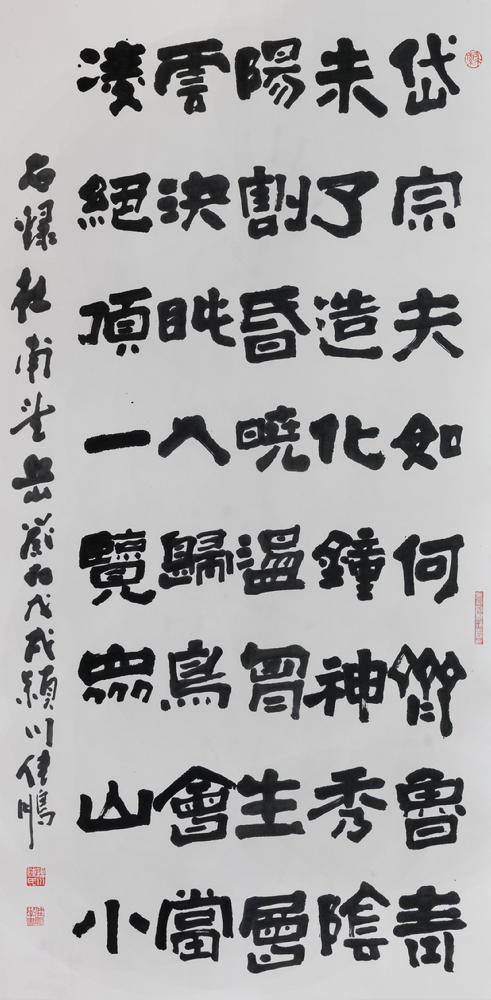 岱宗夫如何齊魯青
未了造化鐘神秀陰
陽割昏曉盪胷生層
雲決眦入歸鳥會當
凌絕頂一覽眾山小
右録杜甫望岳歲在戊戌潁川佳鵬